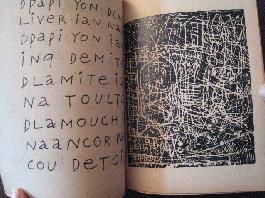 DPAPI YON DCH
LIVER IAN NA
DPAPI YON IA
INQ DEMIT
DLAMITEIZ
NA TOULT
DLAMOUCHI
NAANCOR N
COU DETSI